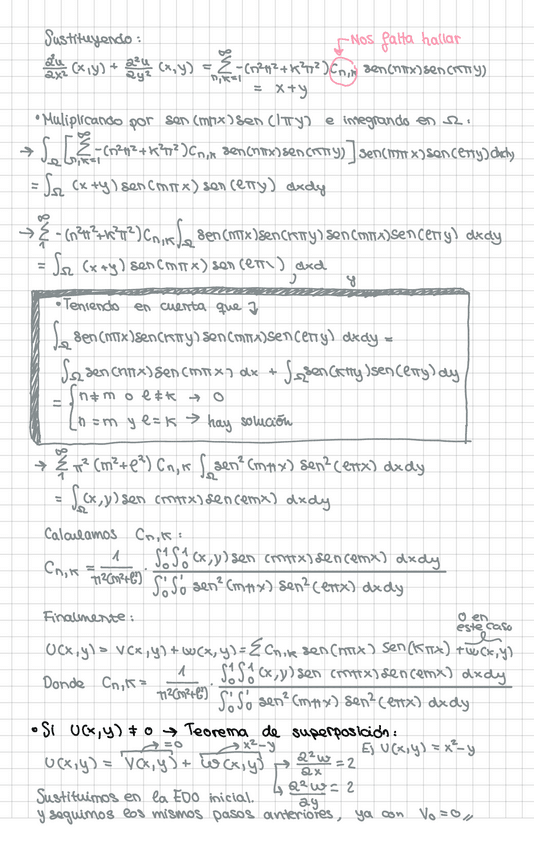 Sustituyendo:
Nos falta hallar
∂²u/∂x² (x,y) + ∂²u/∂y² (x,y) = ∞ Σ n,k=1 -(n²π²+k²π²) Cn,k sen(nπx)sen(kπy)
= x+y
• Muliplicando por sen(mπx)sen(lπy) e integrando en Ω:
→ ∫Ω [ ∞ Σ n,k=1 -(n²π²+k²π²)Cn,k sen(nπx)sen(kπy) ] sen(mπx)sen(eπy)dxdy
= ∫Ω (x+y) sen(mπx) sen(eπy) dxdy
→ ∞ Σ 1 -(n²π²+k²π²)Cn,k ∫Ω sen(nπx)sen(kπy)sen(mπx)sen(eπy) dxdy
= ∫Ω (x+y) sen(mπx) sen(eπ\ ) , dxd y
• Teniendo en cuenta que ↴
∫Ω sen(nπx)sen(kπy)sen(mπx)sen(eπy) dxdy =
∫Ω sen(nπx)sen(mπx) dx + ∫Ω sen(kπy)sen(eπy) dy
= { n≠m o e≠k → 0
n=m y e=k → hay solución
→ ∞ Σ 1 π²(m²+e²) Cn,k ∫Ω sen²(mπx) sen²(eπx) dxdy
= ∫Ω (x,y) sen (mπx)sen(emx) dxdy
Calculamos Cn,k:
Cn,k = 1/π²(m²+e²) · ∫₀¹∫₀¹ (x,y) sen (mπx)sen(emx) dxdy / ∫₀¹∫₀¹ sen²(mπx) sen²(eπx) dxdy
Finalmente:
0 en
este caso
U(x,y) = V(x,y) + w(x,y) = Σ Cn,k sen(nπx) sen(kπx) + w(x,y)
Donde Cn,k = 1/π²(m²+e²) · ∫₀¹∫₀¹ (x,y) sen (mπx)sen(emx) dxdy / ∫₀¹∫₀¹ sen²(mπx) sen²(eπx) dxdy
• Si U(x,y) ≠ 0 → Teorema de superposición:
→ =0 → x²-y Ej U(x,y) = x²-y
U(x,y) = V(x,y) + w(x,y) → ∂²w/∂x = 2
↳ ∂²w/∂y = 2
Sustituimos en la EDO inicial.
y seguimos los mismos pasos anteriores, ya con V₀ = 0 //